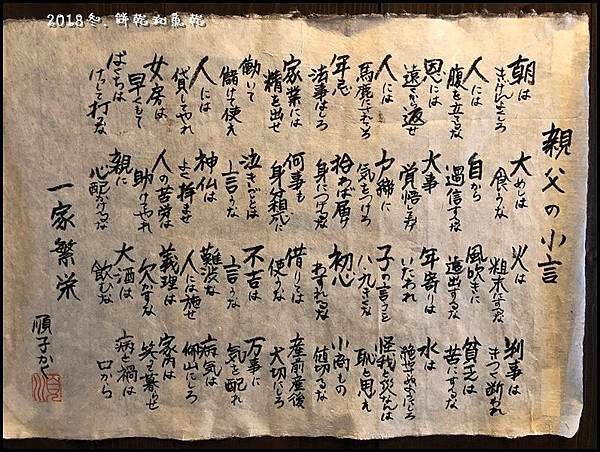 2018冬. 餅乾和魚乾
親父の小言
朝は
きげんよくしろ
人には
腹を立てるな
恩には
遠くから返せ
人には
馬鹿にされていろ
年忌
法事はしろ
家業には
精を出せ
働いて
儲けて使え
人には
貸してやれ
女房は
早くもて
ばくちは
けっして打つな
大めしは
食うな
自から
過信するな
大事
覚悟しろ
戸締に
気をつけろ
拾わば届け
身につけるな
何事も
身分相応に
泣きごとは
言うな
神仏は
よく拝ませ
人の苦労は
助けてやれ
親に
心配かけるな
火は
粗末にするな
風吹きに
遠出するな
年寄りは
いたわれ
子の言うこと
八九きくな
初心
わすれるな
借りては
使うな
不吉は
言うな
難渋な
人には施せ
義理は
欠かすな
大酒は
飲むな
判事は
きつく断われ
貧乏は
苦にするな
水は
絶やさぬようにしろ
怪我と災なんは
恥と思え
小商もの
値切るな
産前産後
大切にしろ
万事に
気を配れ
病気は
仰山にしろ
家内は
笑ふて暮らせ
病と禍は
口から
一家繁栄
順子かく